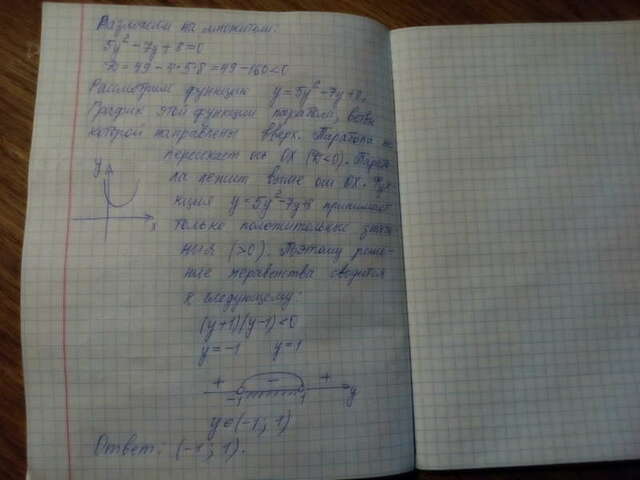 Разложим на множители:
5y² - 7y + 8 = 0
D = 49 - 4·5·8 = 49 - 160 < 0
Рассмотрим функцию y = 5y² - 7y + 8.
График этой функции парабола, ветви
которой направлены вверх. Парабола не
пересекает ось OX (D<0). Парабо-
ла лежит выше оси OX. Фун-
кция y = 5y² - 7y + 8 принимает
только положительные значе-
ния (>0). Поэтому реше-
ние неравенства сводится
к следующему:
y
x
(y+1)(y-1)<0
y = -1 y = 1
+ - +
-1 1 y
y ∈ (-1; 1)
Ответ: (-1; 1).